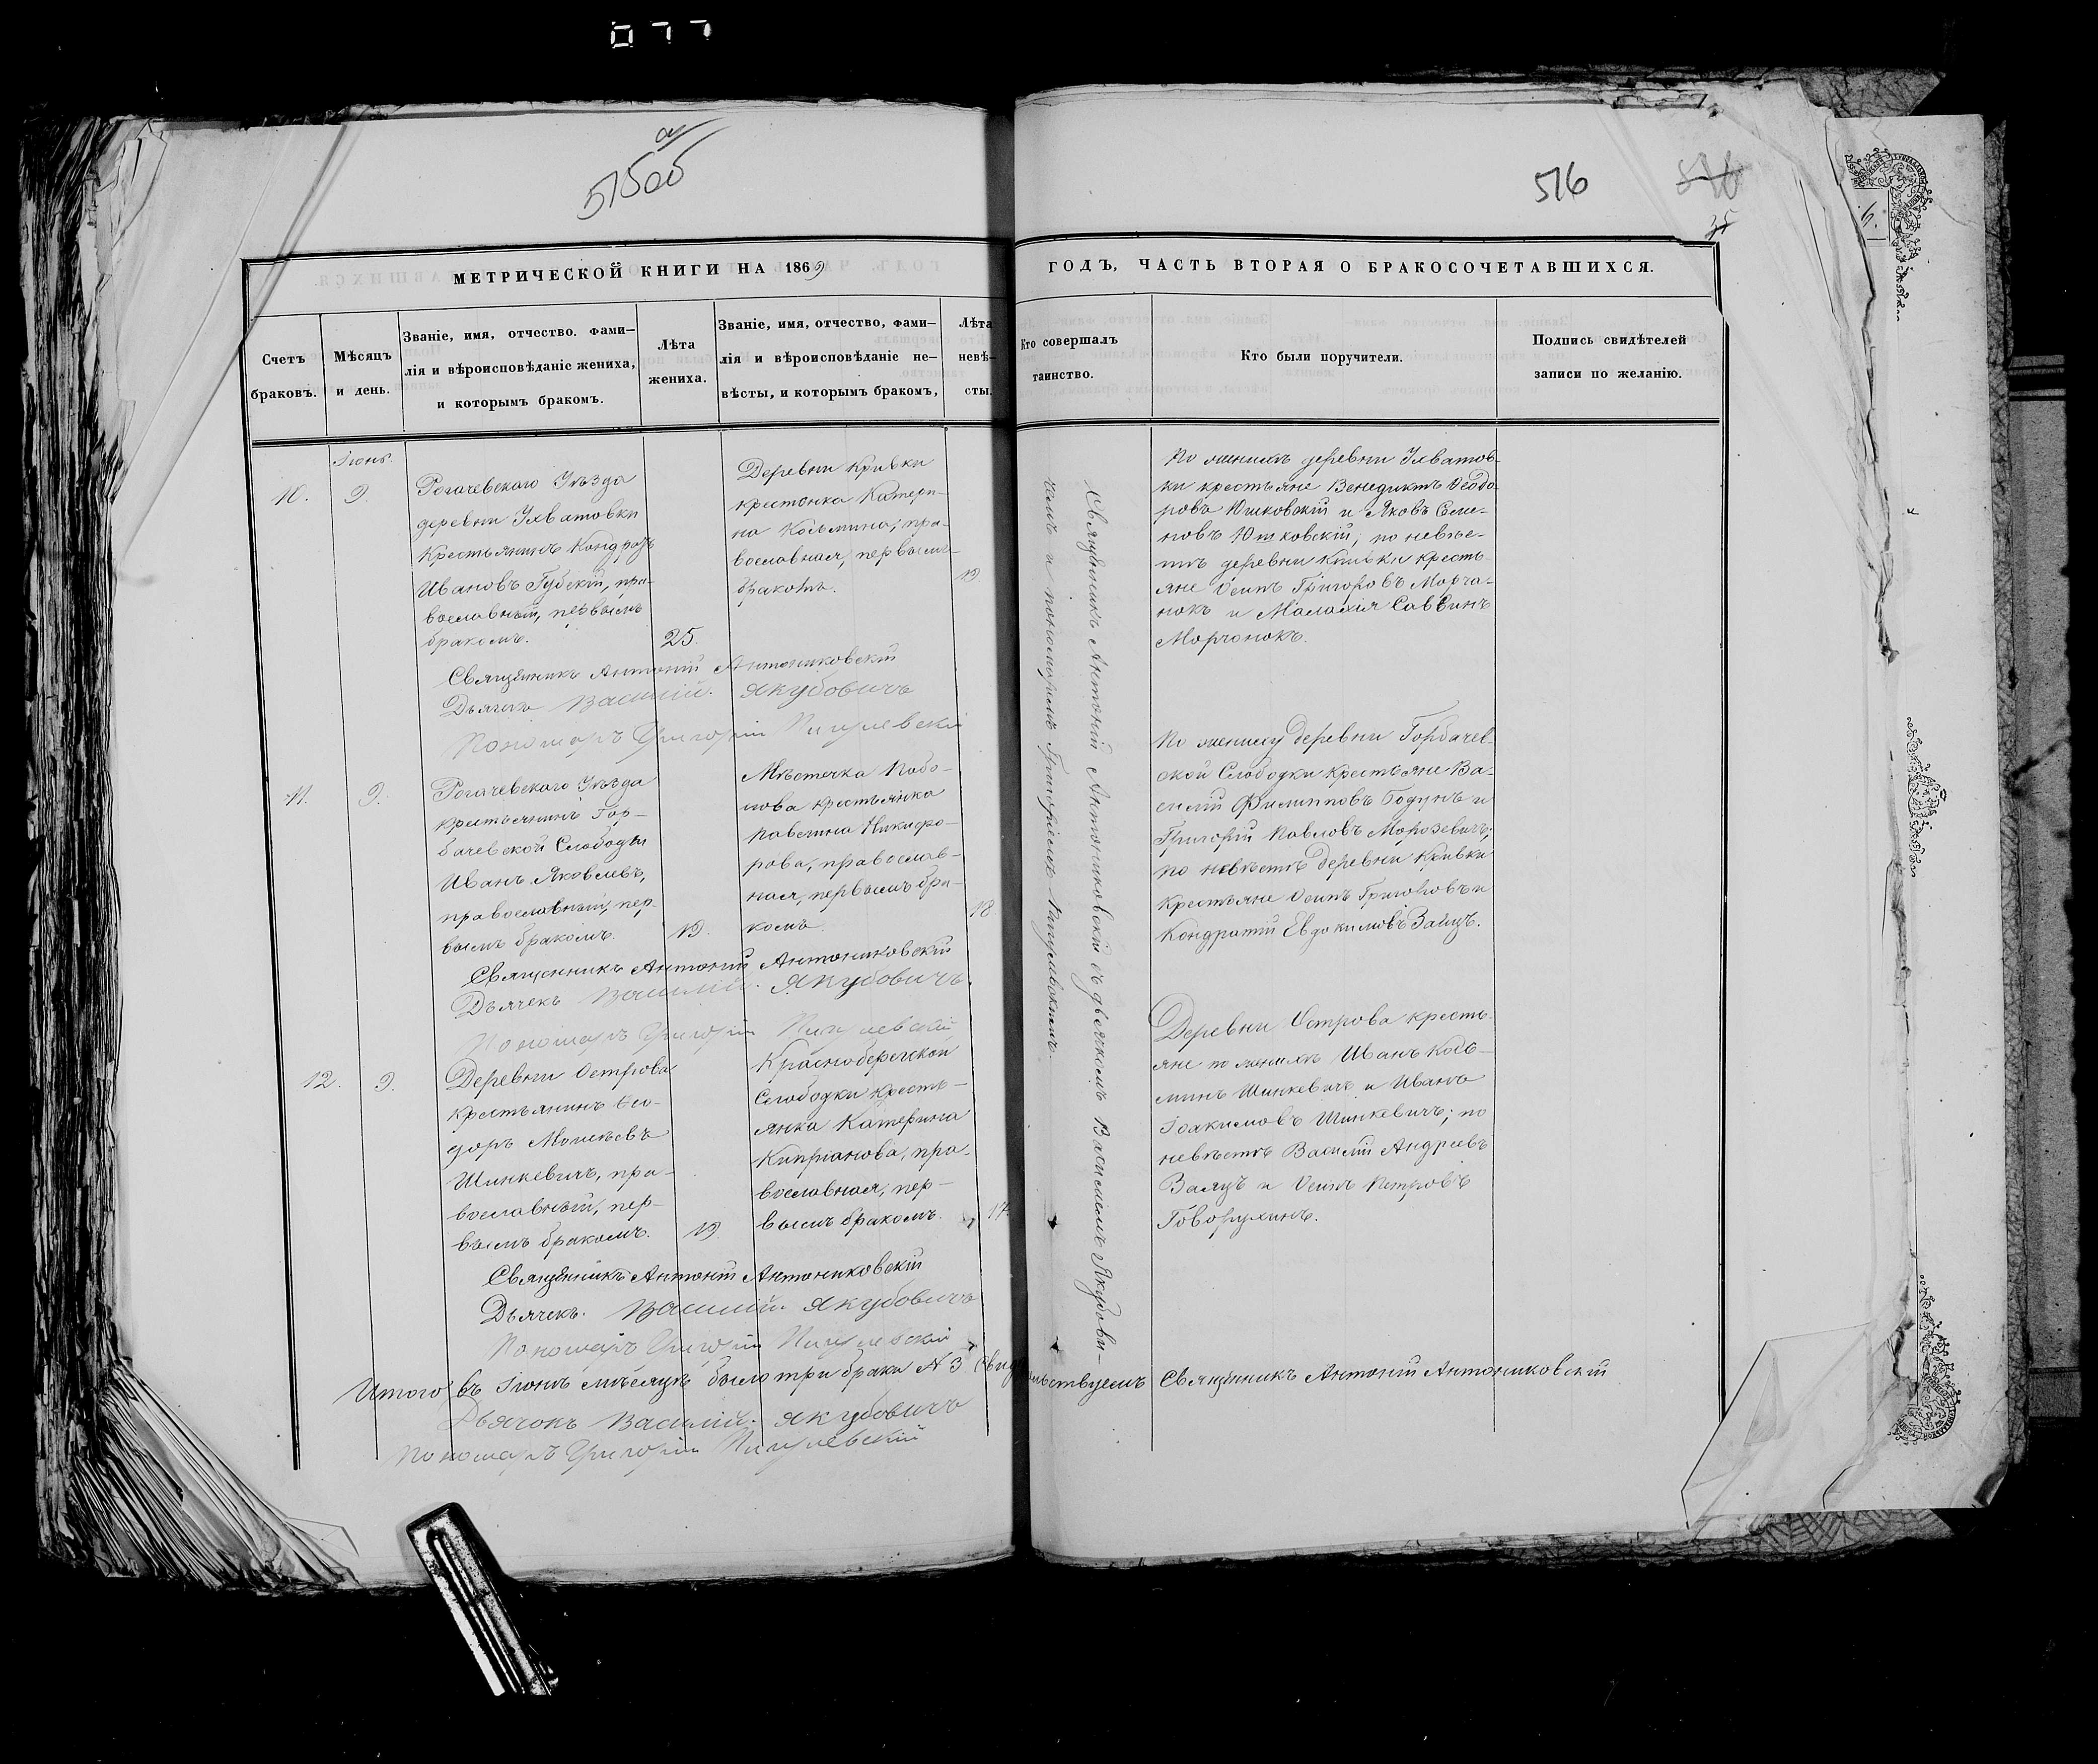 077
515 об
а
516
МЕТРИЧЕСКОЙ КНИГИ НА 1869
ГОДЪ, ЧАСТЬ ВТОРАЯ О БРАКОСОЧЕТАВШИХСЯ.
Счетъ
браковъ.
Мѣсяцъ
и день.
Званіе, имя, отчество. фами-
лія и вѣроисповѣданіе жениха,
и которымъ бракомъ.
Лѣта
жениха.
Званіе, имя, отчество, фами-
лія и вѣроисповѣданіе не-
вѣсты, и которымъ бракомъ,
Лѣта
невѣ-
сты.
Кто совершалъ
таинство.
Кто были поручители.
Подпись свидѣтелей
записи по желанію.
Іюнь.
10.
9.
Рогачевскаго Уѣзда
деревни Ухватовки
крестьянинъ Кондратъ
Ивановъ Губскій, пра-
вославный, первымъ
бракомъ.
25.
Деревни Кривки
крестьянка Катери-
на Козьмина, пра-
вославная, первымъ
бракомъ.
19
По женихѣ деревни Ухватов-
ки крестьяне Венедиктъ Ѳеодо-
ровъ Юшковскій и Яковъ Семе-
новъ Юшковскій; по невѣс-
тѣ деревни Кривки кресть
яне Осипъ Григоровъ Морча-
нокъ и Малахія Саввинъ
Морчонокъ.
Священникъ Антоній Антониковскій
Дьячекъ Василій Якубовичъ
Пономаръ Григорій
11.
9.
Рогачевскаго Уѣзда
крестьянинъ Гор-
бачевской Слободы
Иванъ Яковлевъ,
православный, пер-
вымъ бракомъ.
19.
Мѣстечка Побо-
лова крестьянка
Павлина Никифо-
рова, православ-
ная, первымъ бра-
комъ.
18.
По жениху деревни Горбачев-
ской Слободки крестьяне Ва-
силій Филипповъ Бодунъ и
Григорій Павловъ Морозевичъ;
по невѣстѣ деревни Кривки
крестьяне Осипъ Григоровъ и
Кондратій Евдокимовъ Заяцъ.
Священникъ Антоній Антониковскій
Дьячекъ Василій. Якубовичъ.
Пономаръ Григорій
12.
9.
Деревни Острова
крестьянинъ Ѳео-
доръ Моисѣевъ
Шинкевичъ, пра-
вославный, пер-
вымъ бракомъ.
19.
Краснобережской
Слободки кресть-
янка Катерина
Кипріанова, пра-
вославная, пер-
вымъ бракомъ.
17
Деревни Острова кресть-
яне по женихѣ Иванъ Козь-
минъ Шинкевичъ и Иванъ
Іоакимовъ Шинкевичъ; по
невѣстѣ Василій Андреевъ
Заяцъ и Осипъ Петровъ
Говорухинъ.
Священникъ Антоній Антониковскій
Дьячекъ. Василій Якубовичъ
Пономаръ Григорій
Священникъ Антоній Антониковскій съ дьячкомъ Василіемъ Якубови-
чемъ и пономаремъ Григоріемъ
Итого въ Іюнѣ мѣсяцѣ было три брака № 3 Свидѣтельствуемъ Священникъ Антоній Антониковскій
Дьячокъ Василій. Якубовичъ
Пономаръ Григорій